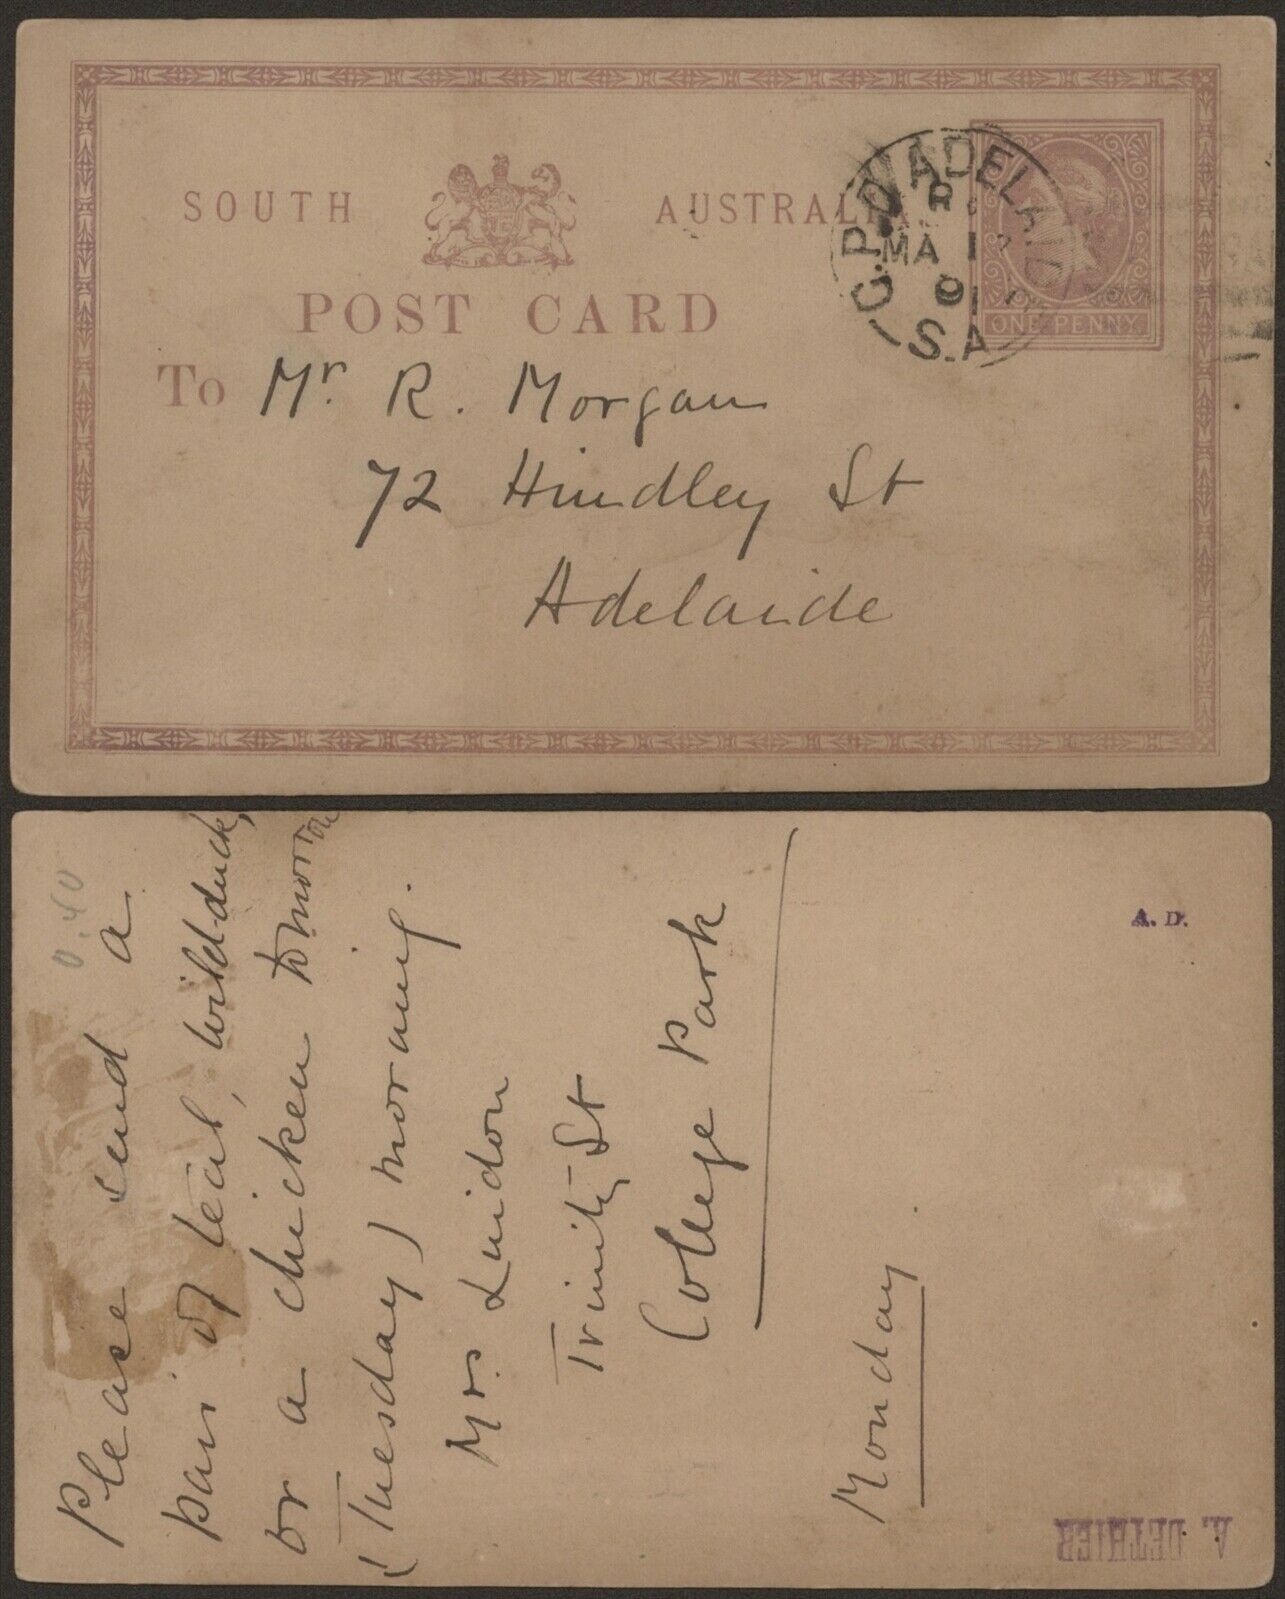 SOUTH AUSTRALIA
POST CARD
G.P.O. ADELAIDE
MA 17
91
S.A
ONE PENNY
To Mr. R. Morgan
72 Hindley St
Adelaide
0.40
Please send a
pair of teal, wild duck,
or a chicken tomorrow
(Tuesday) morning.
Mrs Luidon
Trinity St
College Park
Monday
A. D.
A. DETHIER